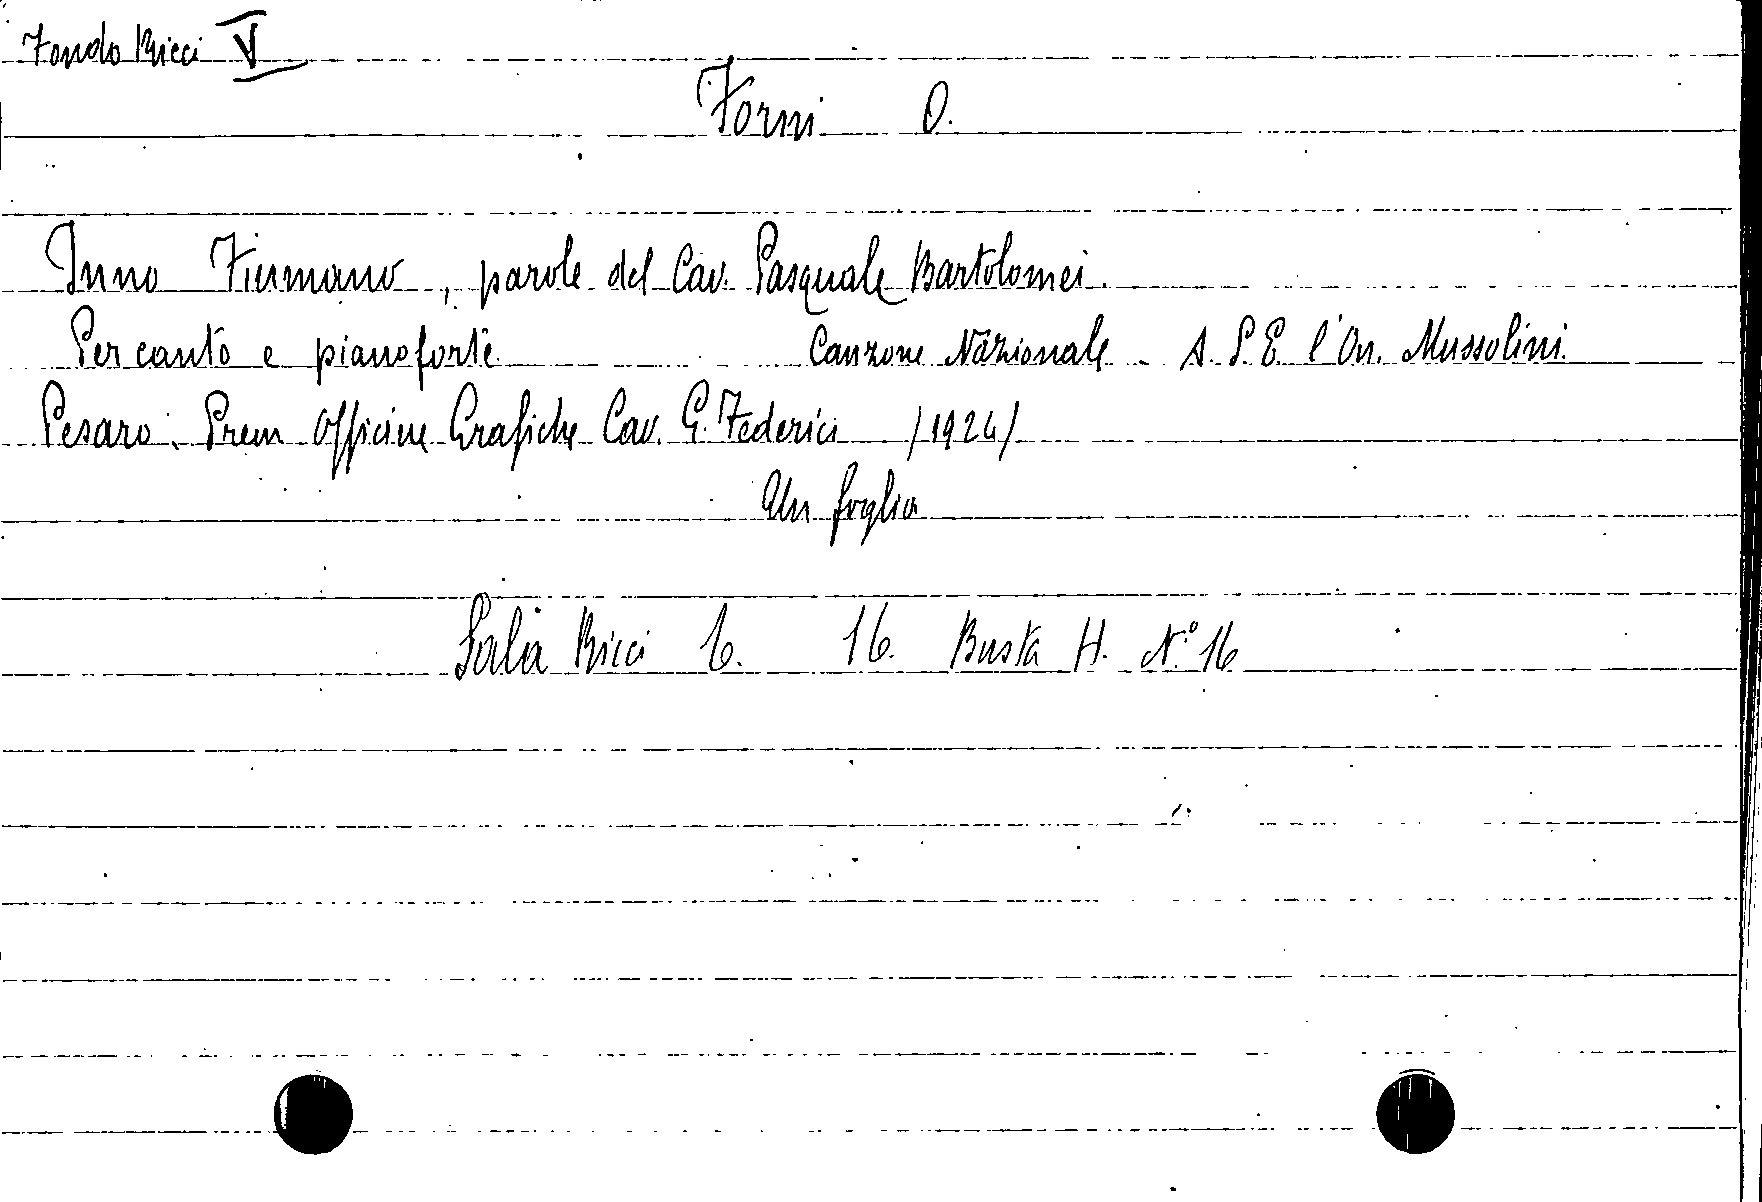 Fondo Ricci V
Forni O.
Inno Fiumano, parole del Cav. Pasquale Bartolomei.
Per canto e pianoforte. Canzone Nazionale - A. S. E. l'On. Mussolini.
Pesaro. Prem Officine Grafiche Cav. G. Federici /1924/
Un foglio
Sala Ricci 6. 16. Busta H. N.° 16